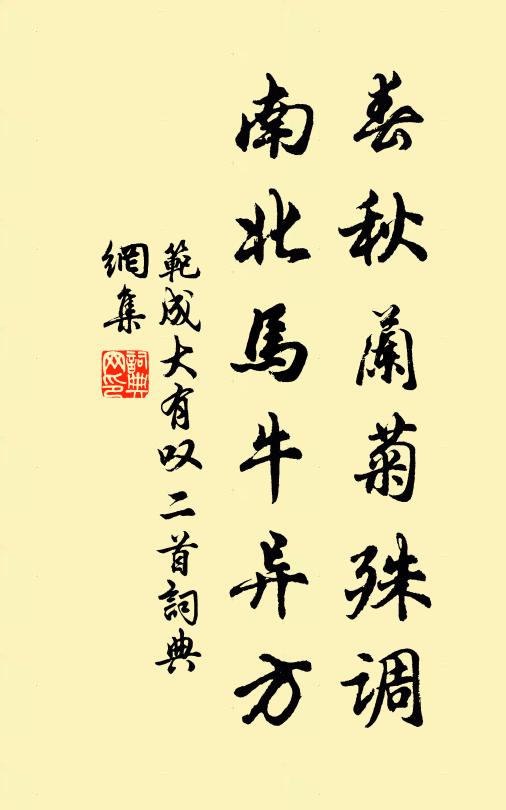 春秋蘭菊殊调
南北馬牛异方
範成大有叹二首詞典
網集
詞典网印